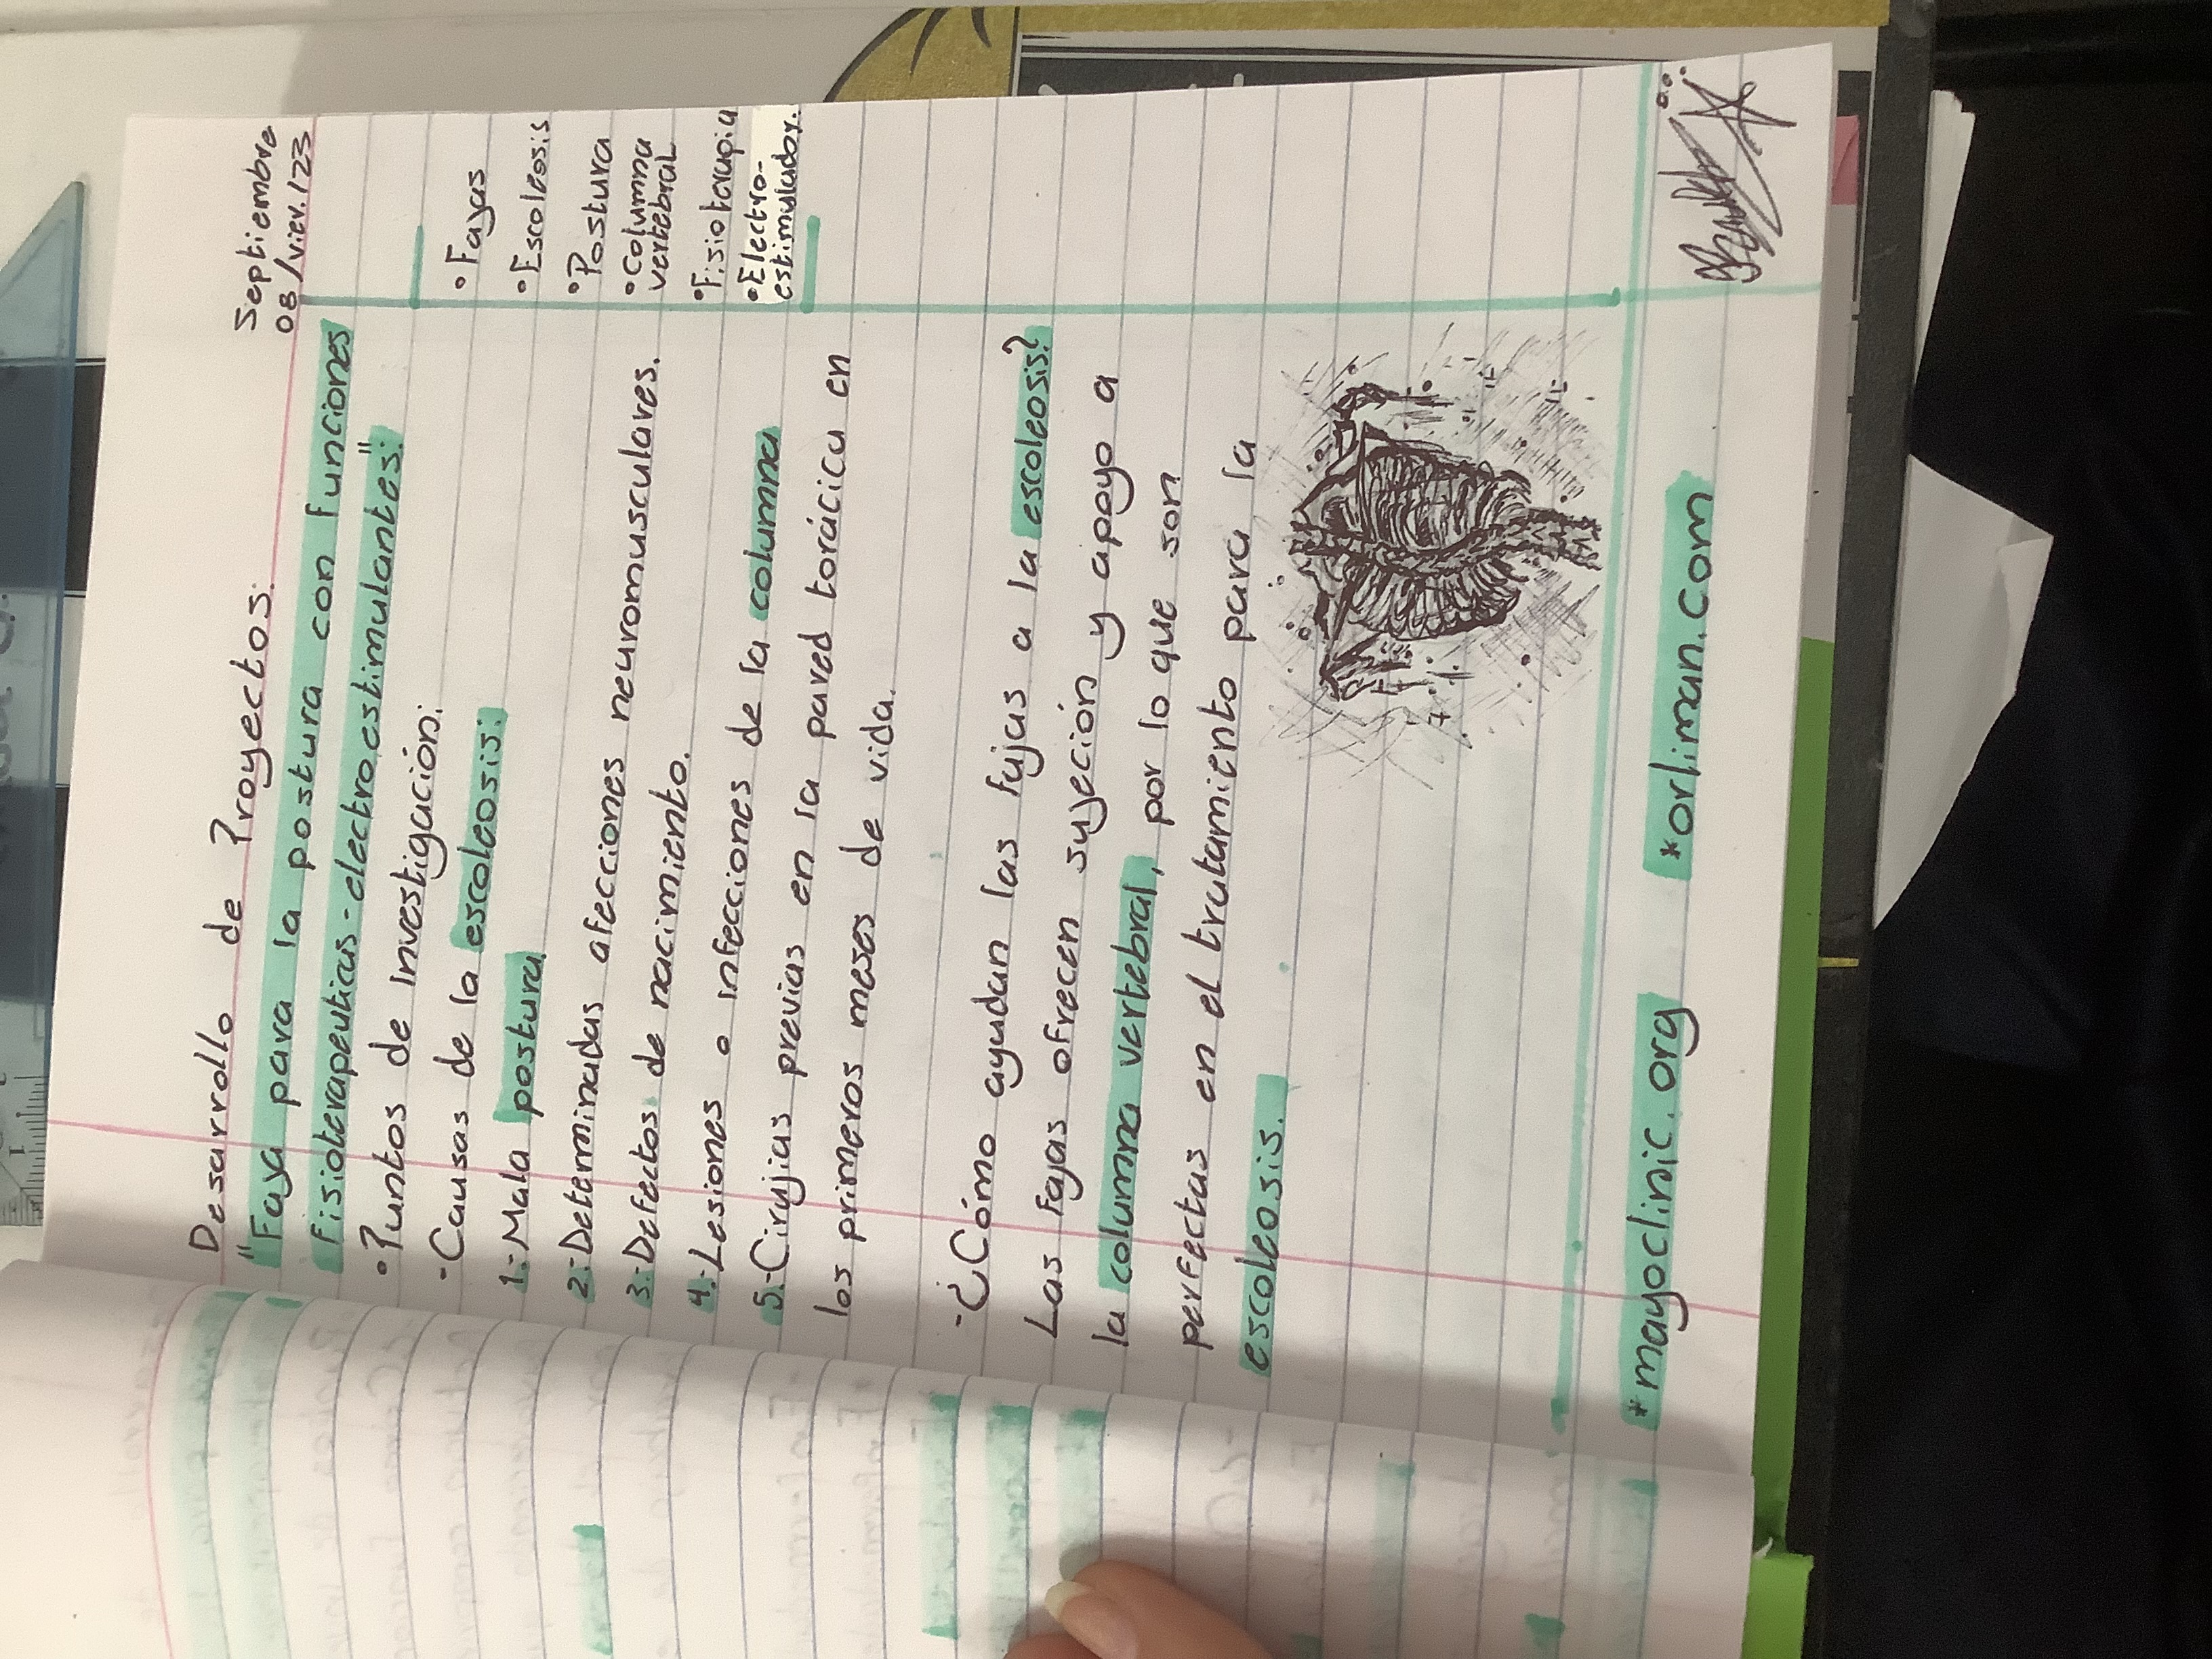 Septiembre
08/vier./23
Desarrollo de Proyectos.
"Faja para la postura con funciones
fisioterapeuticas-electroestimulantes":
• Puntos de investigación:
- Causas de la escoleosis:
1.- Mala postura
2.- Determinadas afecciones neuromusculares.
3.- Defectos de nacimiento.
4.- Lesiones o infecciones de la columna
5.- Cirujias previas en la pared torácica en
los primeros meses de vida.
- ¿Cómo ayudan las fajas a la escoleosis?
Las fajas ofrecen sujeción y apoyo a
la columna vertebral, por lo que son
perfectas en el tratamiento para la
escoleosis.
• Fajas
• Escoleosis
• Postura
• Columna
vertebral
• Fisioterapia
• Electro-
estimulador.
*mayoclinic.org *orliman.com